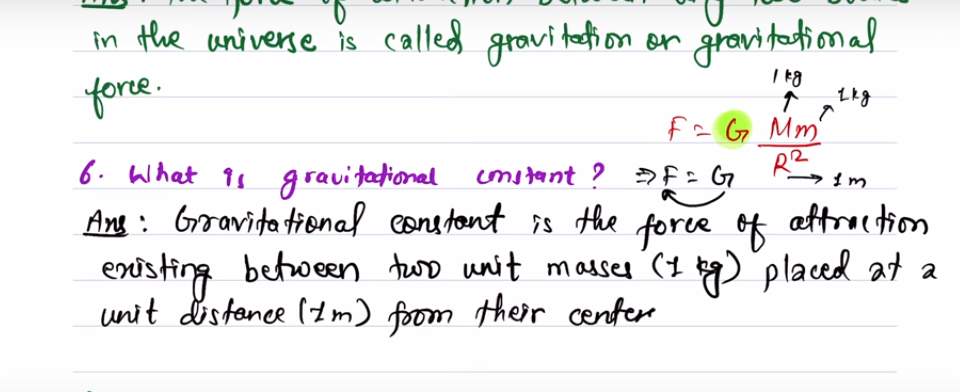 in the universe is called gravitation or gravitational
force.
1 kg
1 kg
F = G Mm
R²
→ 1 m
6. What is gravitational constant? ⇒ F = G
Ans: Gravitational constant is the force of attraction
existing between two unit masses (1 kg) placed at a
unit distance (1m) from their center